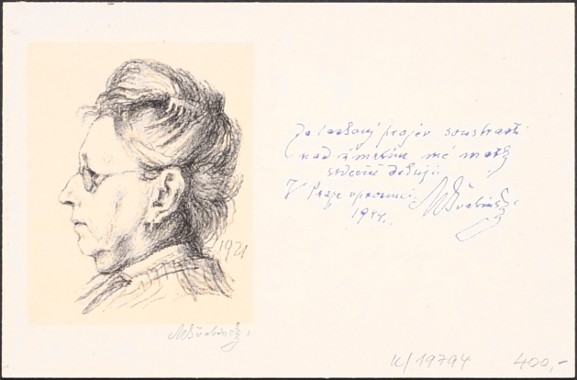 1921
MŠvabinský.
Za laskavý projev soustrasti
nad úmrtím mé matky
srdečně děkuji
V Praze v prosinci MŠvabinský.
1944.
K/19794 400,-